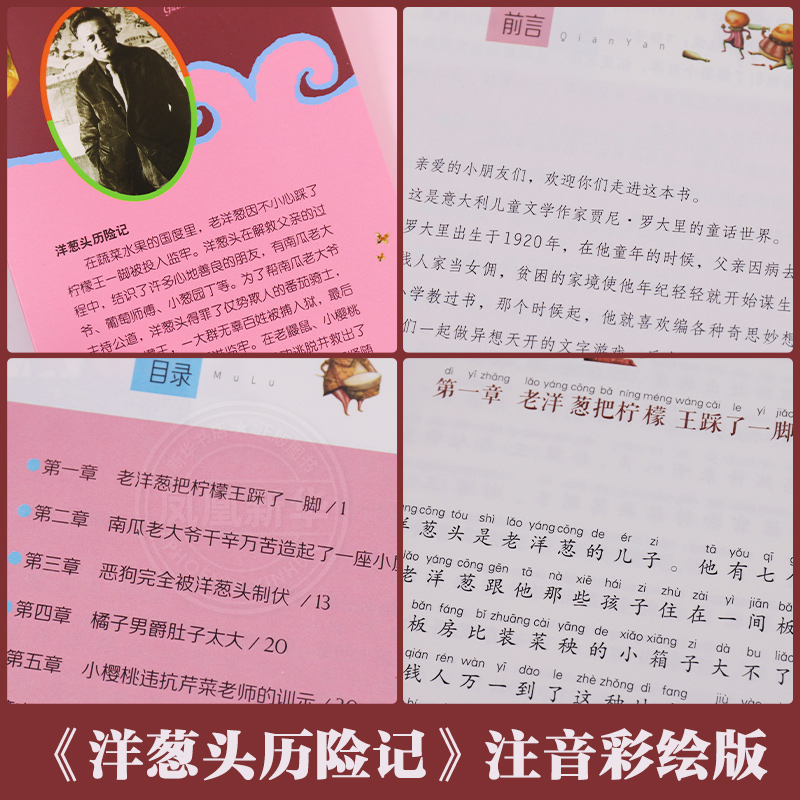 洋葱头历险记
在蔬菜水果的国度里，老洋葱因不小心踩了
柠檬王一脚被投入监牢。洋葱头在解救父亲的过
程中，结识了许多心地善良的朋友，有南瓜老大
爷、葡萄师傅、小葱园丁等。为了帮南瓜老大爷
主持公道，洋葱头得罪了仗势欺人的番茄骑士，
一大群无辜百姓被捕入狱，最后
监牢。在老鼹鼠、小樱桃
逃脱并救出了
前言
QianYan
亲爱的小朋友们，欢迎你们走进这本书。
这是意大利儿童文学作家贾尼·罗大里的童话世界。
罗大里出生于1920年，在他童年的时候，父亲因病去
钱人家当女佣，贫困的家境使他年纪轻轻就开始谋生
小学教过书，那个时候起，他就喜欢编各种奇思妙想
们一起做异想天开的文字游戏
目录
MuLu
第一章 老洋葱把柠檬王踩了一脚 / 1
第二章 南瓜老大爷千辛万苦造起了一座小
第三章 恶狗完全被洋葱头制伏 / 13
第四章 橘子男爵肚子太大 / 20
第五章 小樱桃违抗芹菜老师的训示
凤凰新华
dì yī zhāng lǎo yáng cōng bǎ níng méng wáng cǎi le yì jiǎo
第一章 老洋葱把柠檬王踩了一脚
yáng cōng tóu shì lǎo yáng cōng de ér zi tā yǒu qī
洋葱头是老洋葱的儿子。他有七
lǎo yáng cōng gēn tā nà xiē hái zi zhù zài yì jiān bǎn
老洋葱跟他那些孩子住在一间板
bǎn fáng bǐ zhuāng cài yāng de xiǎo xiāng zi dà bu liǎo
板房比装菜秧的小箱子大不了
qián rén wàn yī dào le zhè zhǒng dì fang
钱人万一到了这种地
《洋葱头历险记》注音彩绘版